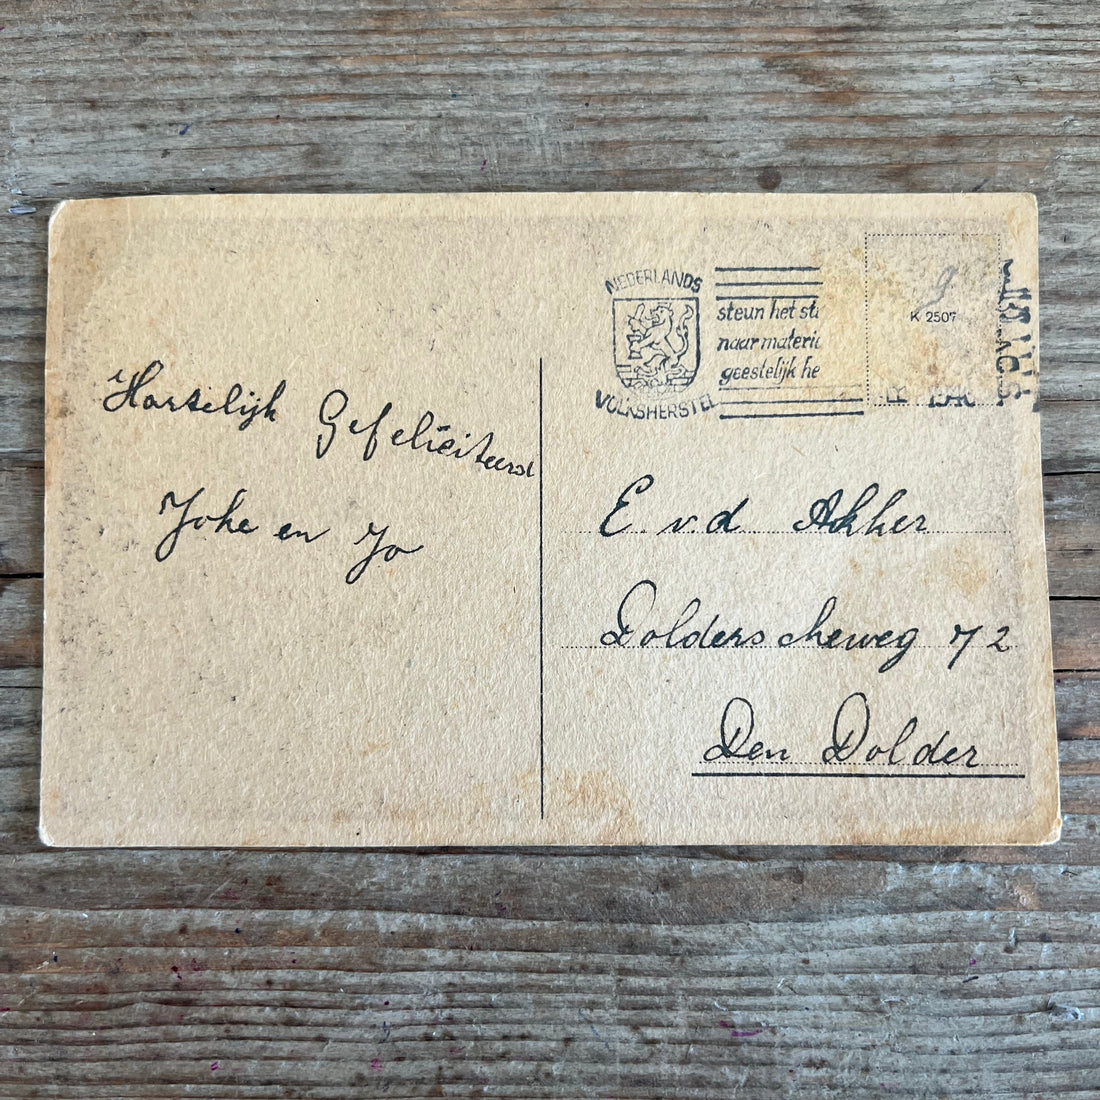 Hartelijk Gefeliciteerd
Joke en Jo
NEDERLANDS
VOLKSHERSTEL
steun het
naar
geestelijk
K 2507
E. v.d Akker
Dolderscheweg 72
Den Dolder